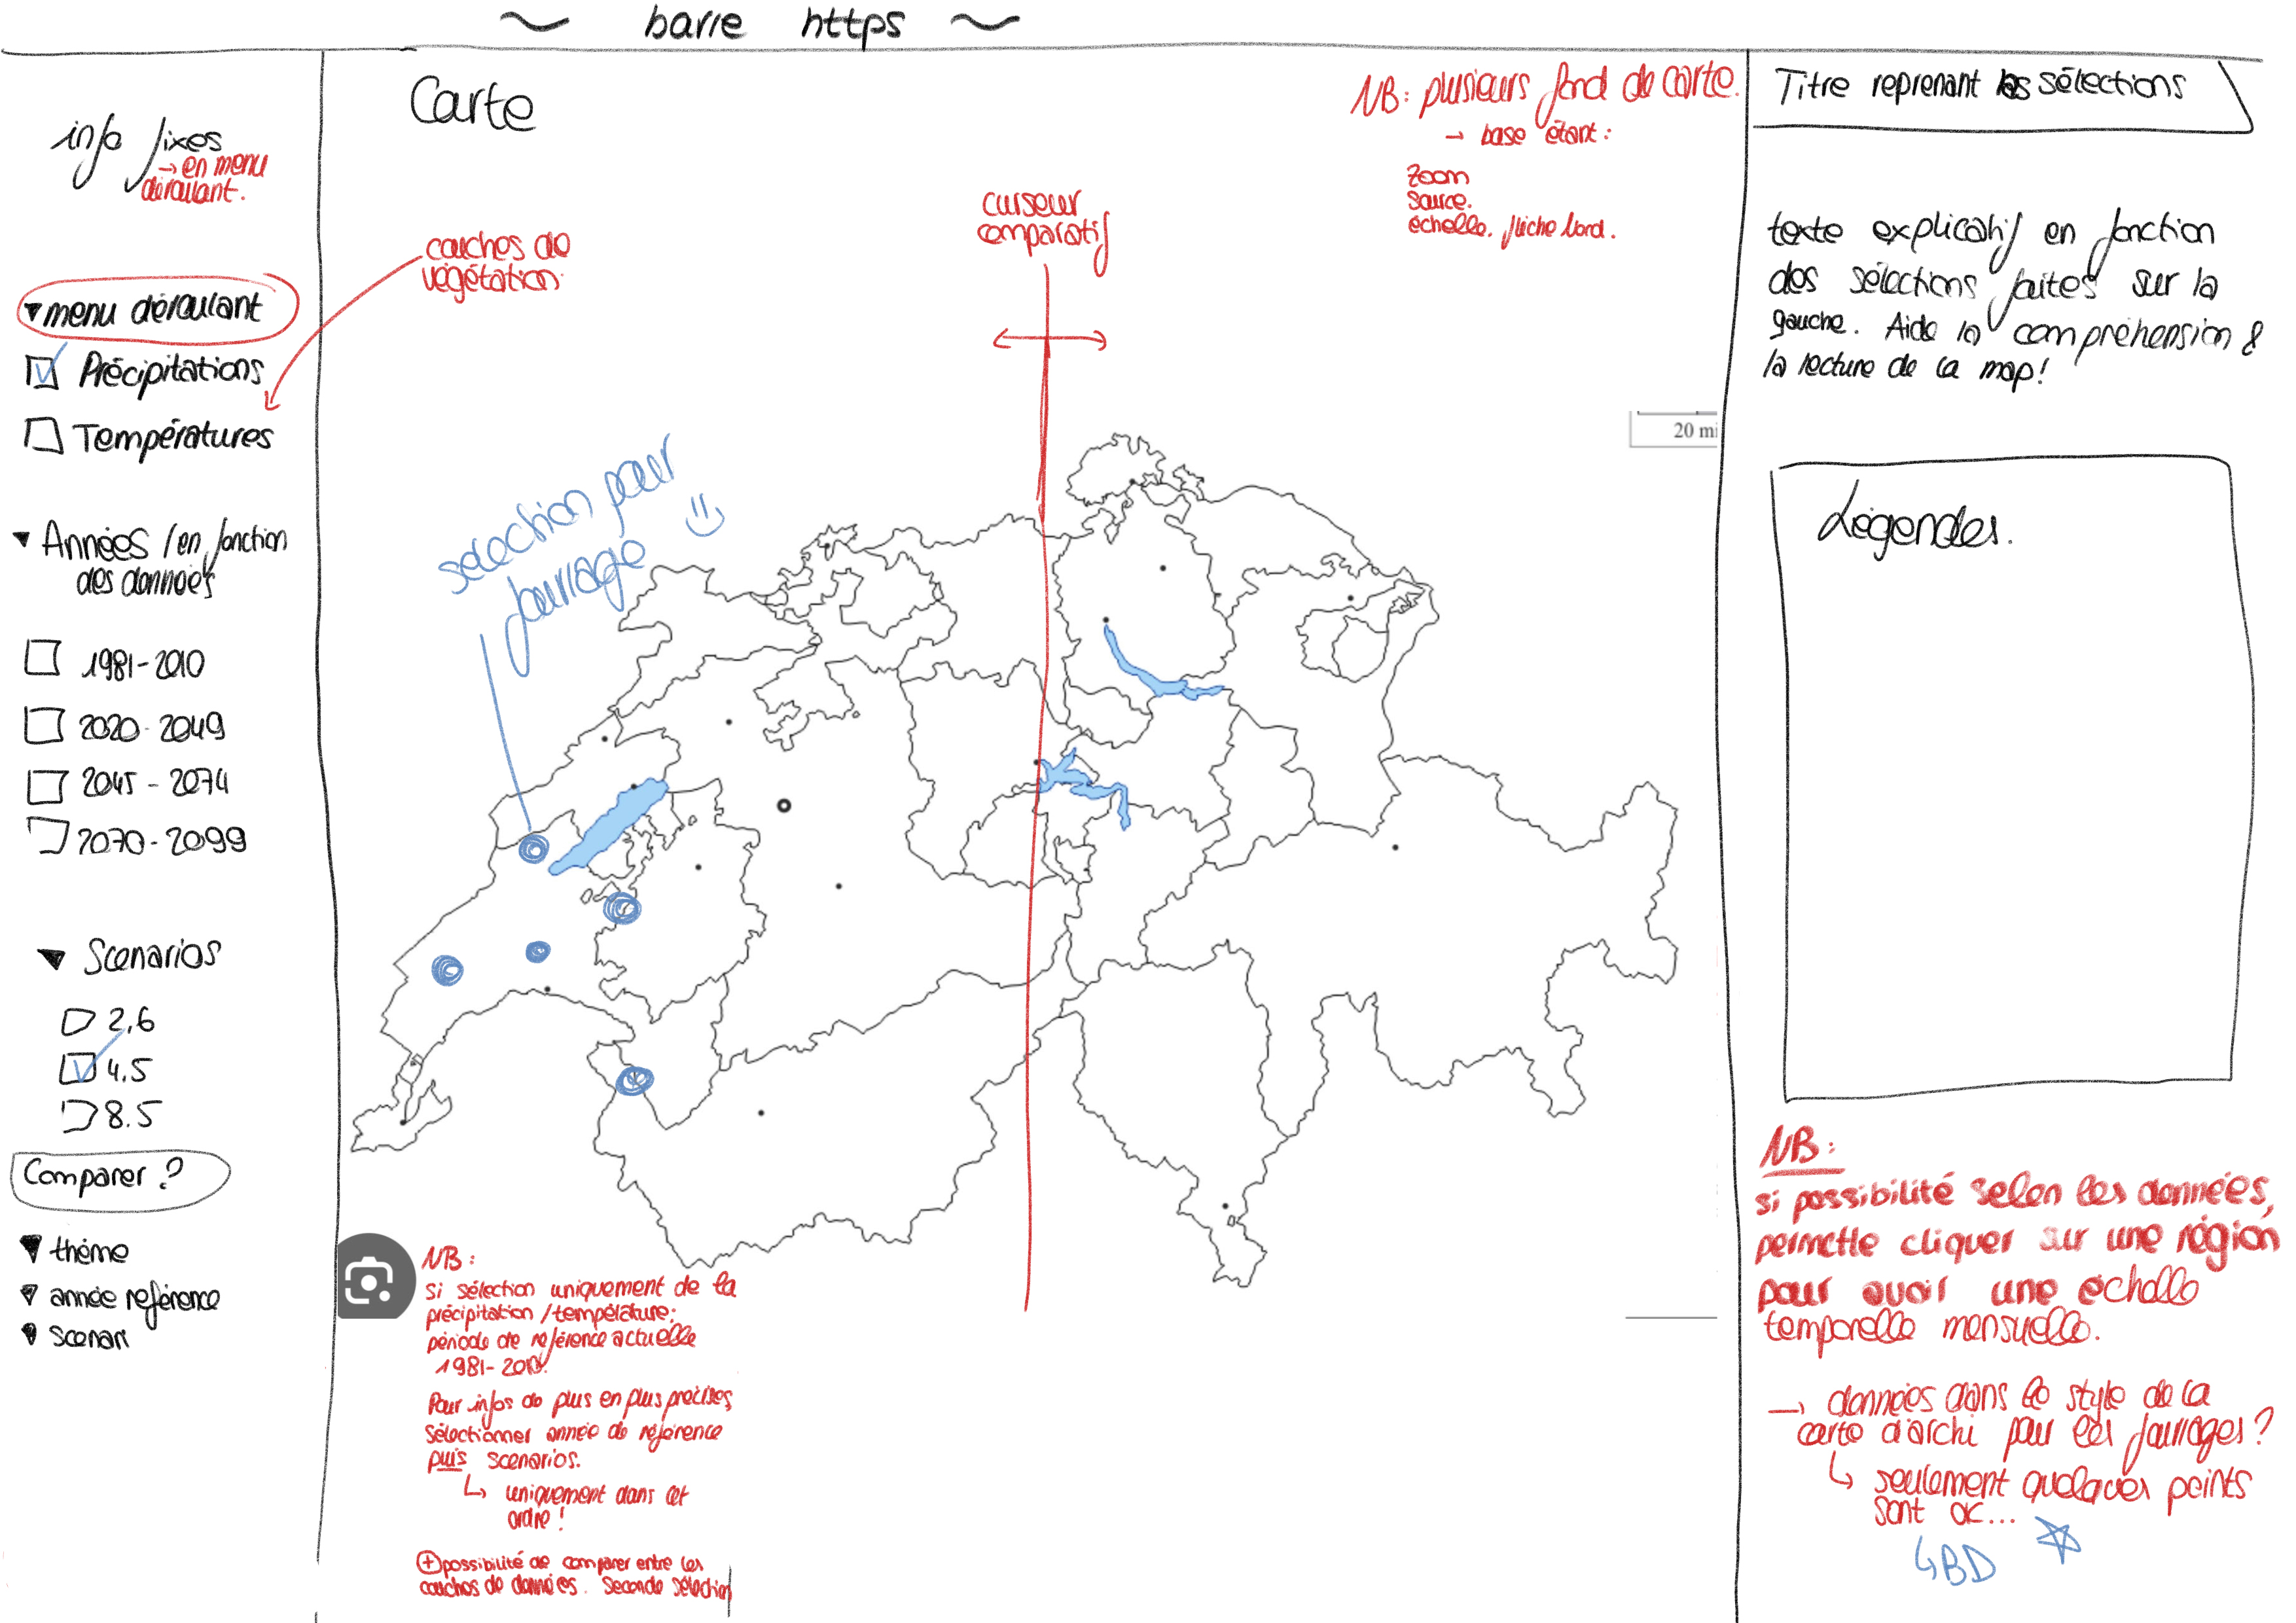 ~ barre https ~
info fixes
→ en menu
déroulant.
▼ menu déroulant
Précipitations
Températures
▼ Années / en fonction
des données
1981-2010
2020-2049
2045-2074
2070-2099
▼ Scenarios
2,6
4.5
8.5
Comparer ?
▼ thème
▼ année reférence
▼ scenari
Carte
couches de
végétation
curseur
comparatif
NB: plusieurs fond de carte.
→ base étant :
Zoom
Source.
échelle. flèche Nord.
sélection pour
fourrage
20 mi
NB :
si sélection uniquement de la
précipitation / température:
période de référence actuelle
1981-2010.
Pour infos de plus en plus précises,
sélectionner année de référence
puis scenarios.
↳ uniquement dans cet
ordre !
+ possibilité de comparer entre les
couches de données. Seconde sélection
Titre reprenant les sélections
texte explicatif en fonction
des sélections faites sur la
gauche. Aide la compréhension &
la lecture de la map!
Légendes.
NB :
si possibilité selon les données,
permettre cliquer sur une région
pour avoir une échelle
temporelle mensuelle.
→ données dans le style de la
carte d'archi pour les fourrages?
↳ seulement quelques points
sont ok...
↳ BD